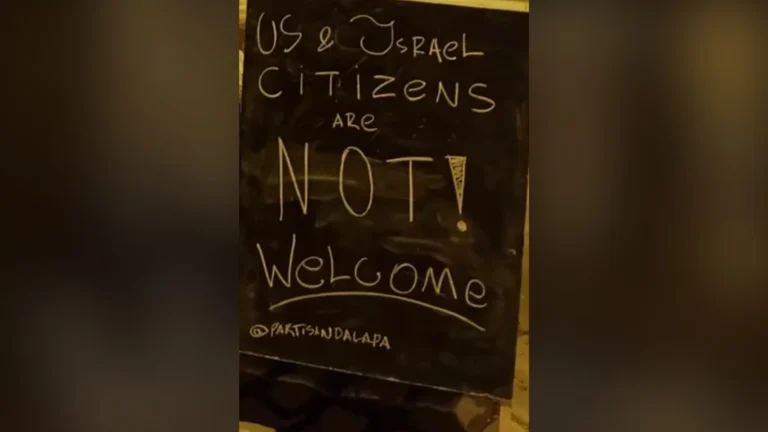 US & ISRAEL
CITIZENS
ARE
NOT!
WELCOME
@PARTISANDALAPA